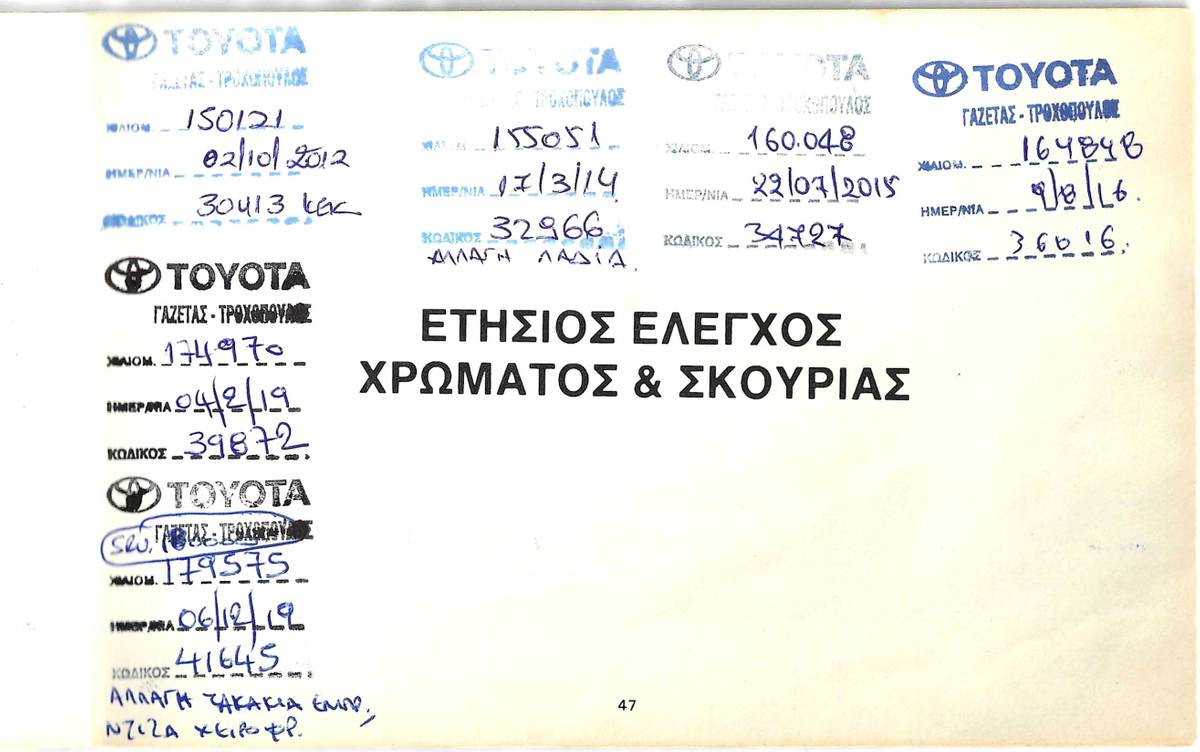 TOYOTA
ΓΑΖΕΤΑΣ - ΤΡΟΧΟΠΟΥΛΟΣ
ΧΙΛΙΟΜ. 150121
ΗΜΕΡ/ΝΙΑ 02/10/2012
ΚΩΔΙΚΟΣ 30413 ΚΕΚ
TOYOTA
ΓΑΖΕΤΑΣ - ΤΡΟΧΟΠΟΥΛΟΣ
ΧΙΛΙΟΜ. 155051
ΗΜΕΡ/ΝΙΑ 17/3/14
ΚΩΔΙΚΟΣ 32966
ΑΛΛΑΓΗ ΛΑΔΙΑ
TOYOTA
ΓΑΖΕΤΑΣ - ΤΡΟΧΟΠΟΥΛΟΣ
ΧΙΛΙΟΜ. 160.048
ΗΜΕΡ/ΝΙΑ 22/07/2015
ΚΩΔΙΚΟΣ 34727
TOYOTA
ΓΑΖΕΤΑΣ - ΤΡΟΧΟΠΟΥΛΟΣ
ΧΙΛΙΟΜ. 164848
ΗΜΕΡ/ΝΙΑ 9/8/16.
ΚΩΔΙΚΟΣ 36016.
TOYOTA
ΓΑΖΕΤΑΣ - ΤΡΟΧΟΠΟΥΛΟΣ
ΧΙΛΙΟΜ. 174970
ΗΜΕΡ/ΝΙΑ 04/2/19
ΚΩΔΙΚΟΣ 39872
ΕΤΗΣΙΟΣ ΕΛΕΓΧΟΣ
ΧΡΩΜΑΤΟΣ & ΣΚΟΥΡΙΑΣ
TOYOTA
ΓΑΖΕΤΑΣ - ΤΡΟΧΟΠΟΥΛΟΣ
ΧΙΛΙΟΜ. 179575
ΗΜΕΡ/ΝΙΑ 06/12/19
ΚΩΔΙΚΟΣ 41645
ΑΛΛΑΓΗ ΤΑΚΑΚΙΑ ΕΜΠΡ,
ΝΤΙΖΑ ΧΕΙΡΟΦΡ.
47